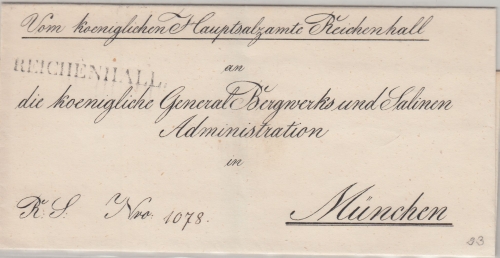 Vom koeniglichen Hauptsalzamte Reichenhall
an
REICHENHALL.
die koenigliche General Bergwerks und Salinen
Administration
in
R: S: Nro. 1078.
München
93